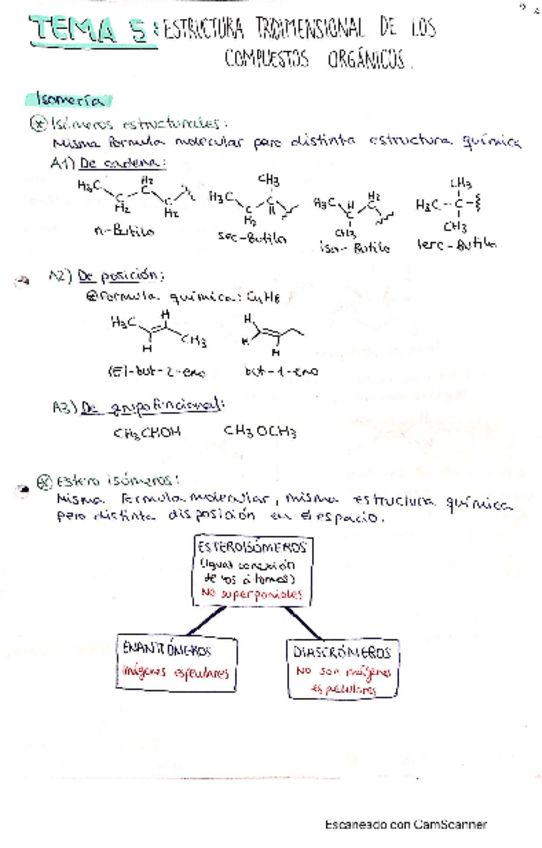 TEMA 5: ESTRUCTURA TRIDIMENSIONAL DE LOS
COMPUESTOS ORGÁNICOS.
Isomería
* Isómeros estructurales:
Misma formula molecular pero distinta estructura química
A1) De cadena:
H3C H2C H2C H2C
n-Butilo
H3C C H2 CH3 C H
sec-Butilo
H3C H C CH3 H2C
iso-Butilo
CH3 H3C-C CH3
terc-Butilo
A2) De posición:
Formula química: C4H8
H3C H H CH3
(E)-but-2-eno
H H H
but-1-eno
A3) De grupo funcional:
CH3CHOH CH3OCH3
* Estero isómeros:
Misma formula molecular, misma estructura química
pero distinta disposición en el espacio.
ESTEROISÓMEROS
(Igual conexión
de los átomos)
NO superponibles
ENANTIÓMEROS
imágenes espelulares
DIASTRÓMEROS
NO son imágenes
espelulares
Escaneado con CamScanner